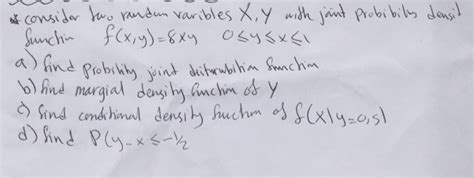 * consider two random varibles X, Y with joint probibility densit
functin f(x,y)=8xy 0≤y≤x≤1
a) find probibility joint disturubition function
b) find margial density function of Y
c) find conditional density function of f(x|y=0,5)
d) find P(y-x≤-1/2